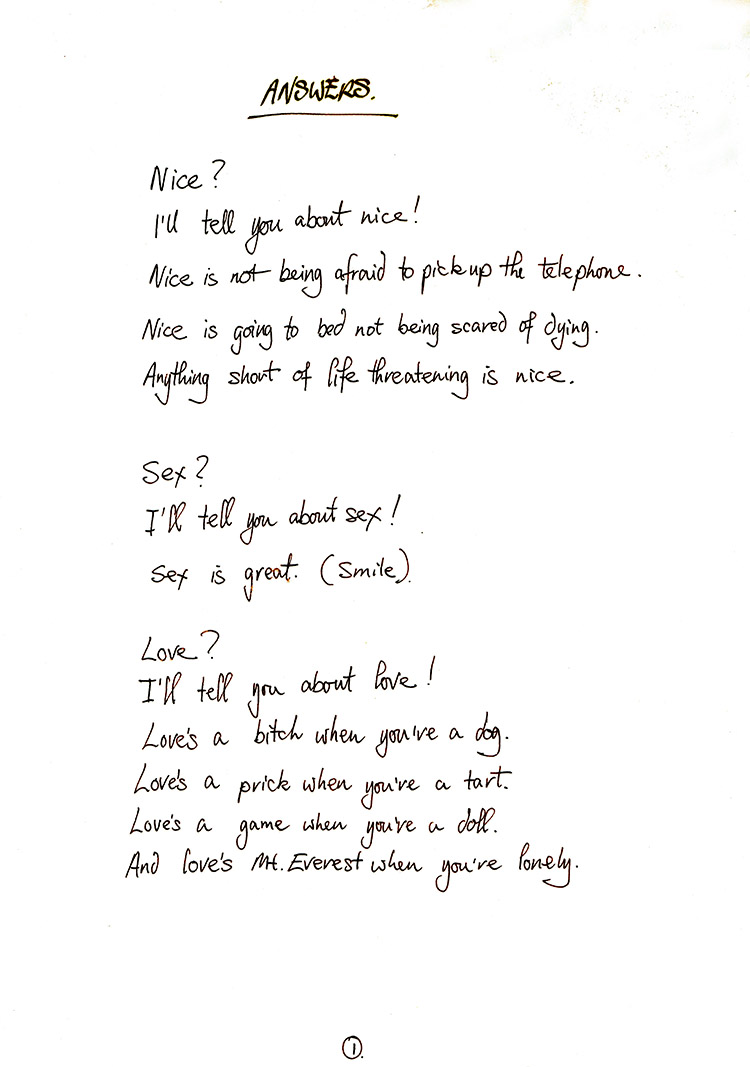 ANSWERS.
Nice?
I'll tell you about nice!
Nice is not being afraid to pick up the telephone.
Nice is going to bed not being scared of dying.
Anything short of life threatening is nice.
Sex?
I'll tell you about sex!
Sex is great. (Smile).
Love?
I'll tell you about love!
Love's a bitch when you're a dog.
Love's a prick when you're a tart.
Love's a game when you're a doll.
And love's Mt. Everest when you're lonely.
1.